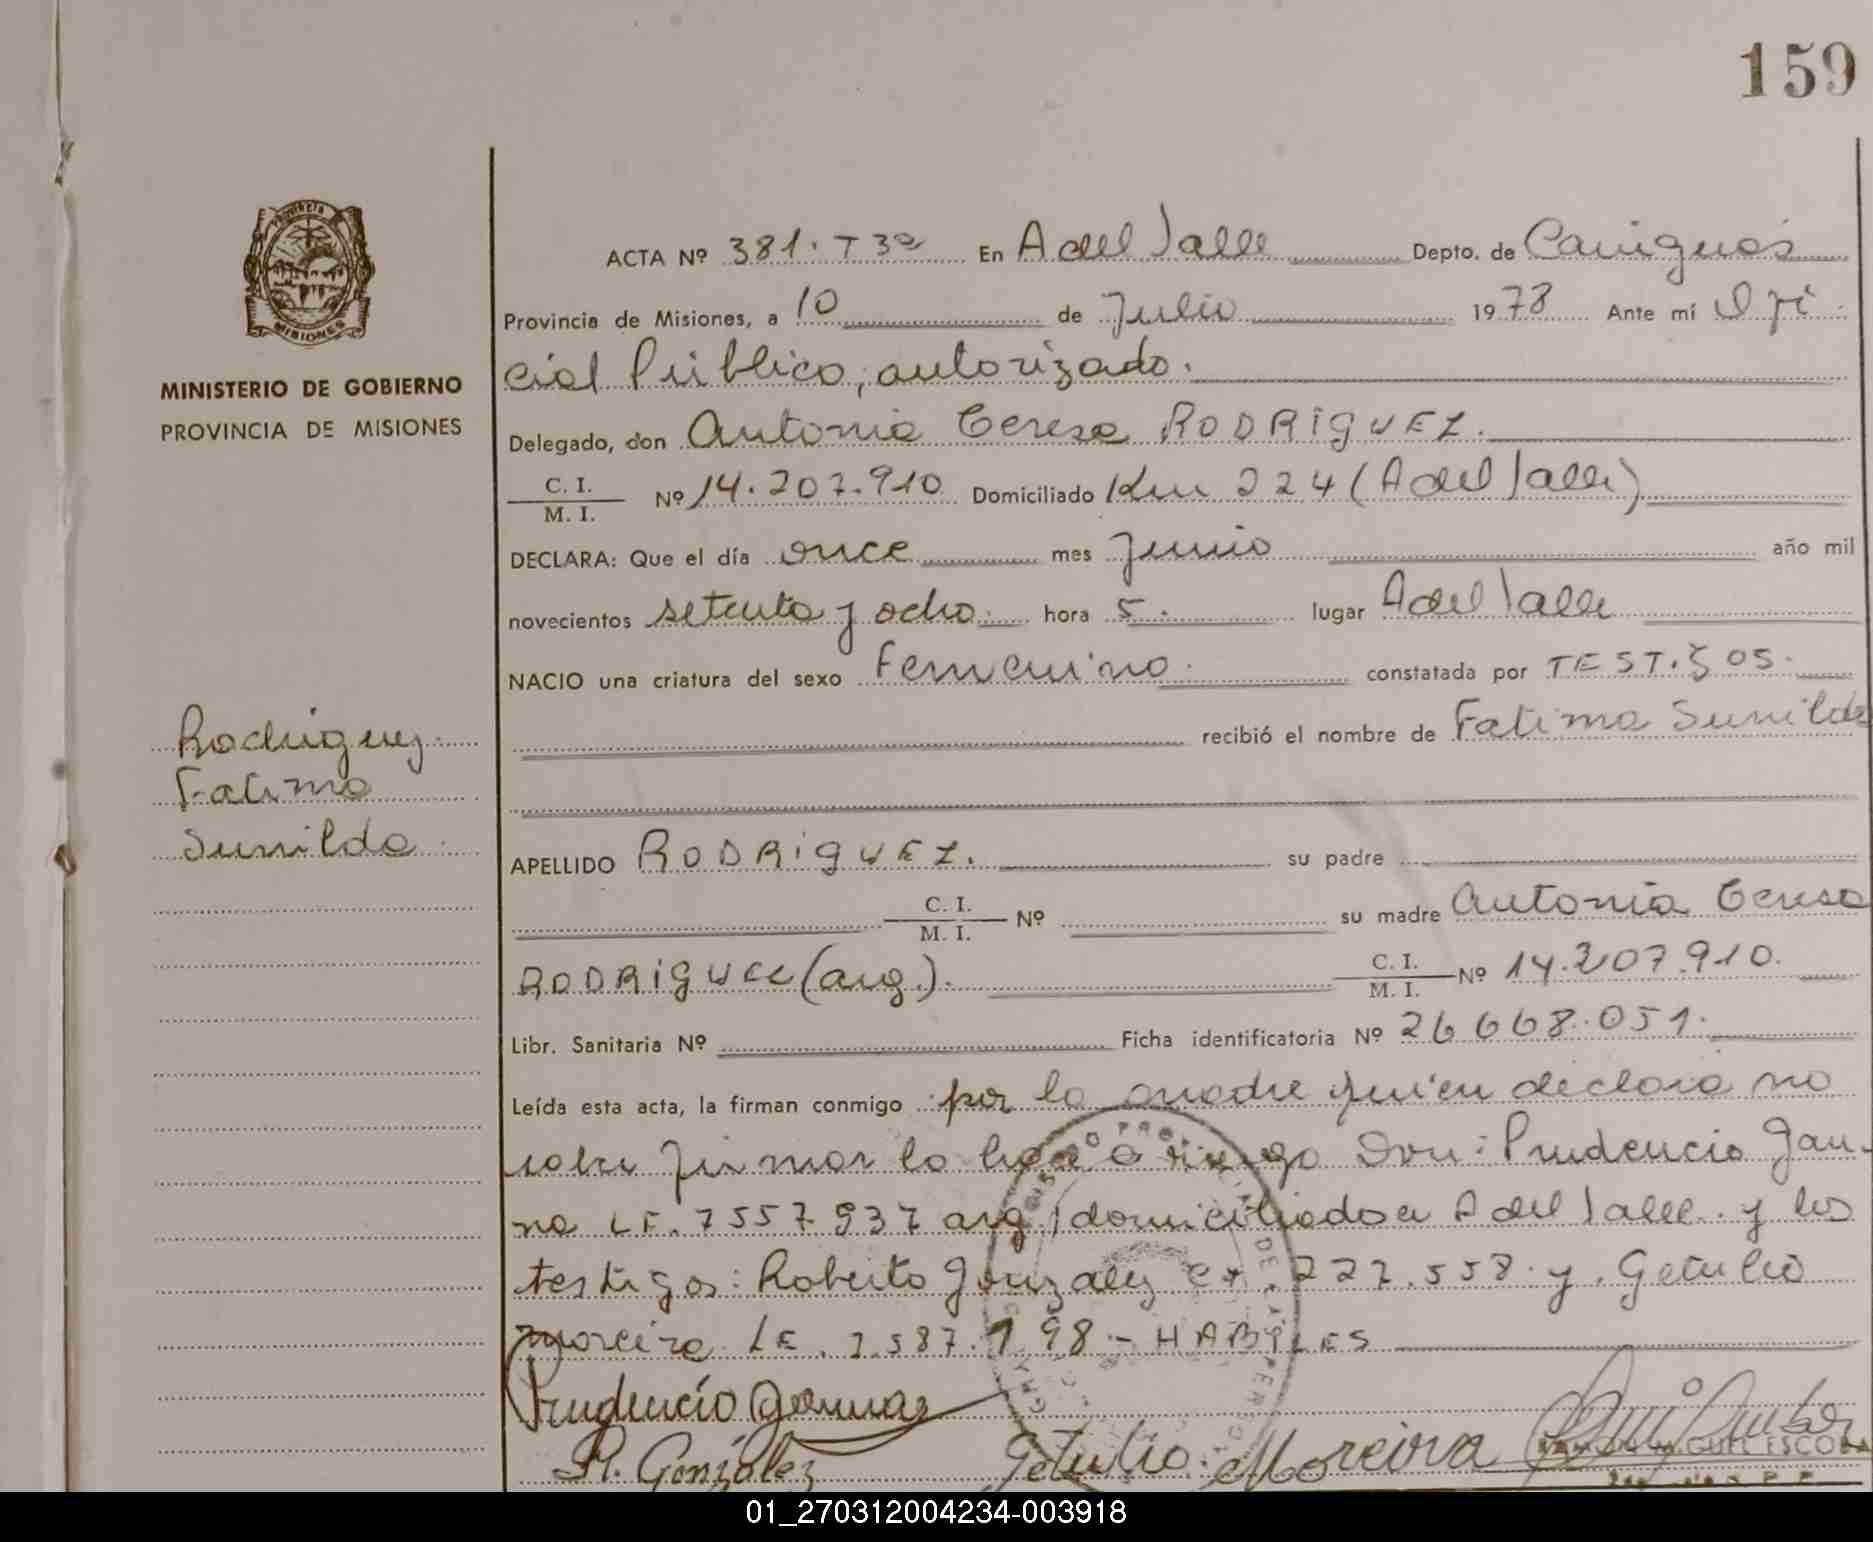 159
PROVINCIA
MISIONES
MINISTERIO DE GOBIERNO
PROVINCIA DE MISIONES
ACTA Nº 381. T 3º En A del Valle Depto. de Cainguas
Provincia de Misiones, a 10 de Julio 1978 Ante mí Ofi
cial Público, autorizado.
Delegado, don Antonia Teresa RODRIGUEZ.
C. I.
M. I.
Nº 14.207.910 Domiciliado Km 224 (A del Valle)
DECLARA: Que el día once mes Junio año mil
novecientos setenta y ocho. hora 5. lugar A del Valle
NACIO una criatura del sexo Femenino. constatada por TEST.gos.
recibió el nombre de Fatima Sunilda
Rodriguez.
Fatima
Sunilda.
APELLIDO RODRIGUEZ. su padre
C. I.
M. I.
Nº su madre Antonia Teresa
RODRIGUEZ (arg.). C. I.
M. I.
Nº 14.207.910.
Libr. Sanitaria Nº Ficha identificatoria Nº 26.668.051.
Leída esta acta, la firman conmigo por la madre quien declara no
saber firmar lo hace a ruego Don: Prudencio Gau-
na LE. 7557.937 arg. domiciliado en A del Valle. y los
testigos: Roberto Gonzalez 227.558. y. Getulio
Moreira LE. 7.587.198 - HABILES
Prudencio Gaunas
R. González Getulio. Moreira
RAMON MIGUEL ESCOBAR
01_270312004234-003918